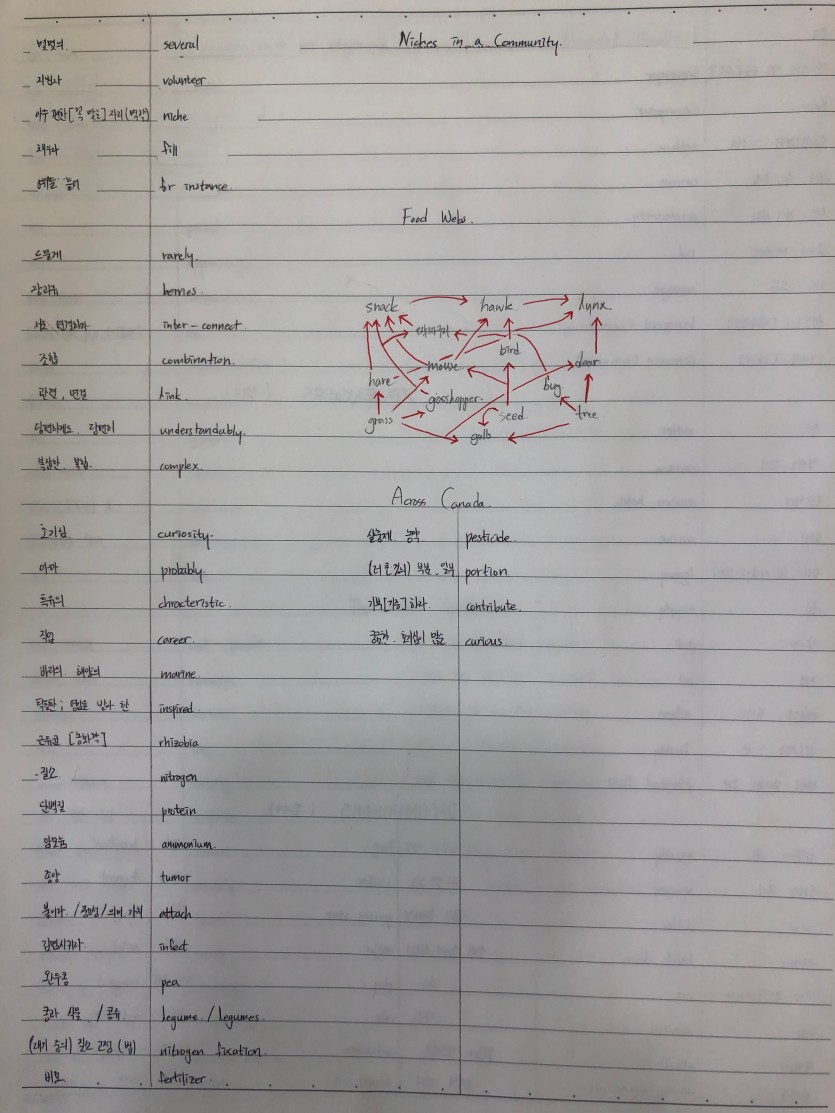 몇몇의 several
Niches in a Community.
지원자 volunteer.
아주 편한[꼭 맞을] 자리(벽감) niche
채우다 fill
예를 들어 for instance.
Food Webs.
드물게 rarely.
장과류 berries
snack hawk lynx
상호 연결하다 inter-connect.
딱따구리
bird
조합 combination.
mouse dear
hare bug
관련, 연결 Link.
grasshopper.
grass seed tree
당연하게도, 당연히 understandably.
gulb
복잡한 복합. complex.
Across Canada.
호기심 curiosity. 살충제, 농약 pesticide.
아마 probably. (더 큰 것의) 부분, 일부 portion.
특유의 chracteristic. 기부[기증]하다 contribute.
직업 career. 궁금한, 호기심이 많은 curious.
바다의 해양의 marine
탁월한; 영감을 받아 한 inspired.
근류균 rhizobia
질소 nitrogen
단백질 protein
암모늄 ammonium.
종양 tumor
붙이다 / 중요성/의미 가치 attach
감염시키다 infect
완두콩 pea
콩과 식물 / 콩류 legume / legumes.
(대기 중의) 질소 고정(법) nitrogen fixation.
비료 fertilizer.